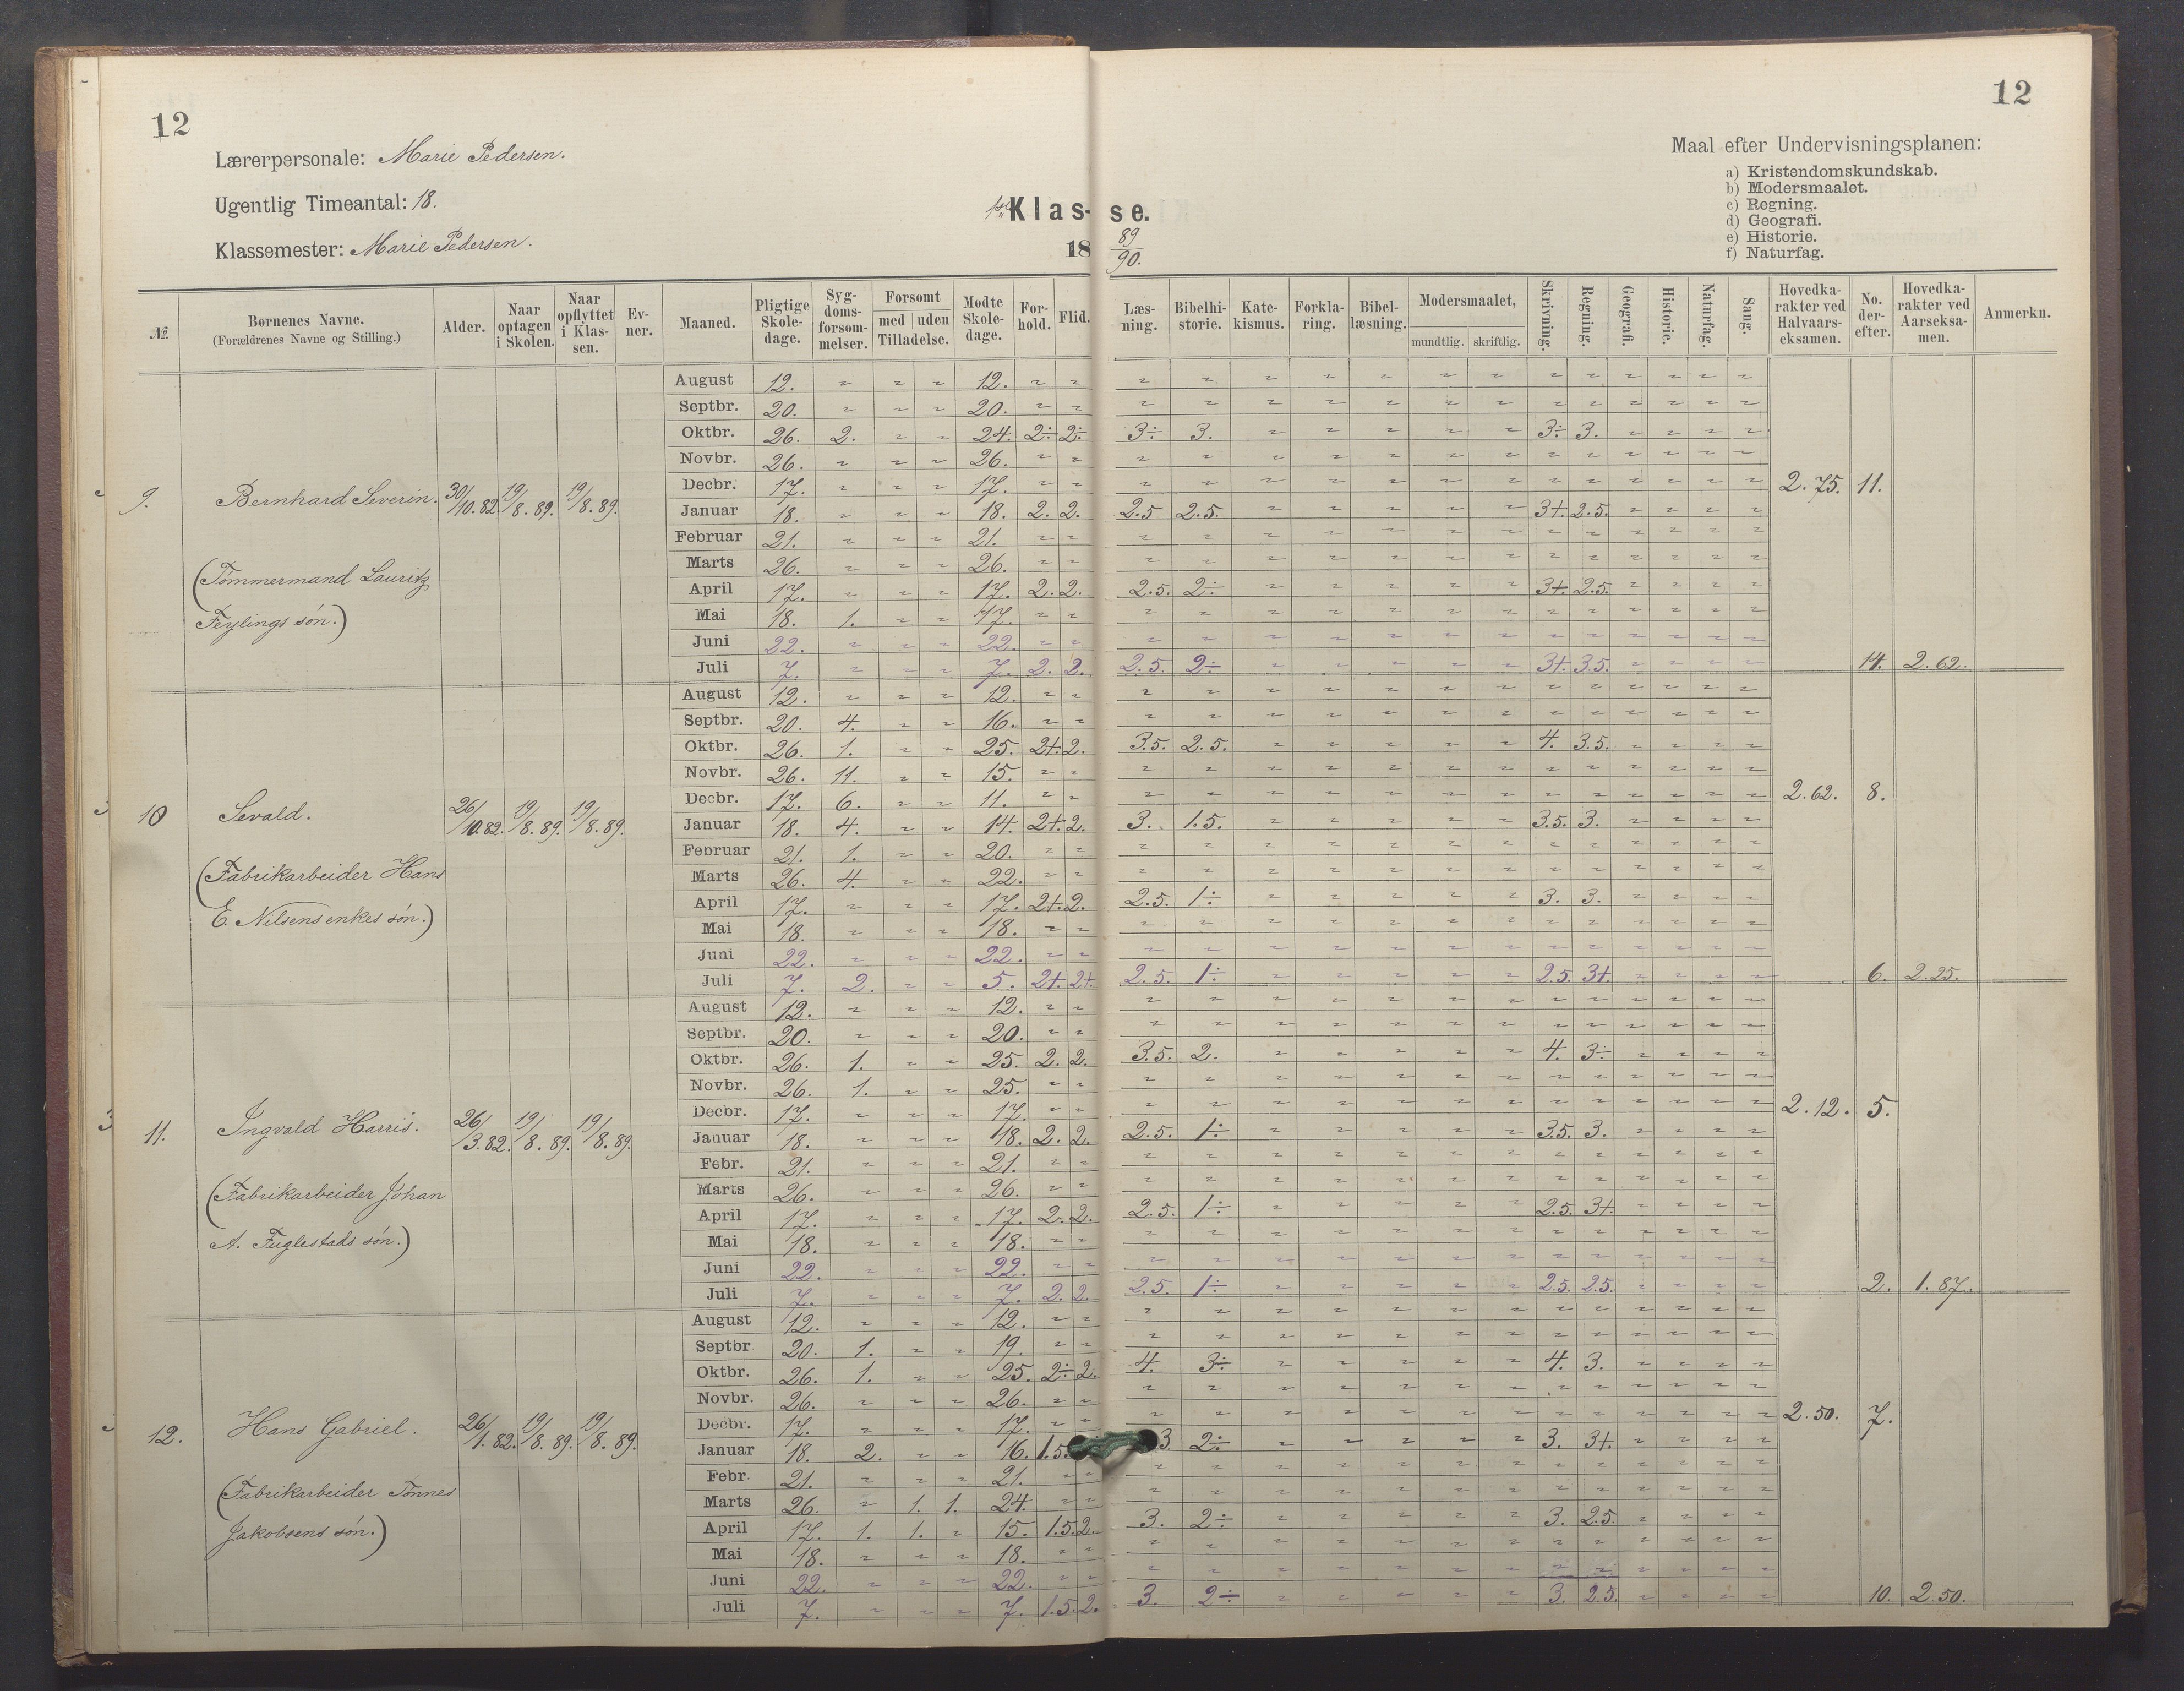 12
12
Lærerpersonale: Marie Pedersen.
Ugentlig Timeantal: 18.
Klassemester: Marie Pedersen.
1ste Klasse.
18 89/90.
Maal efter Undervisningsplanen:
a) Kristendomskundskab.
b) Modersmaalet.
c) Regning.
d) Geografi.
e) Historie.
f) Naturfag.
№. | Børnenes Navne. (Forældrenes Navne og Stilling.) | Alder. | Naar optagen i Skolen. | Naar opflyttet i Klassen. | Evner. | Maaned. | Pligtige Skoledage. | Sygdomsforsømmelser. | Forsømt med uden Tilladelse. | Mødte Skoledage. | Forhold. | Flid. | Læsning. | Bibelhistorie. | Katekismus. | Forklaring. | Bibellæsning. | Modersmaalet, mundtlig. skriftlig. | Skrivning. | Regning. | Geografi. | Historie. | Naturfag. | Sang. | Hovedkarakter ved Halvaarseksamen. | No. derefter. | Hovedkarakter ved Aarseksamen. | Anmerkn.
9. Bernhard Severin. 30/10.82. 19/8.89. 19/8.89. 2.75. 11.
(Tømmermand Lauritz
Feylings søn.)
August 12. " " " 12. " " " " " " " " " " " " " " "
Septbr. 20. " " " 20. " " " " " " " " " " " " " " "
Oktbr. 26. 2. " " 24. 2÷ 2÷ 3÷ 3. " " " " " 3÷ 3. " " " "
Novbr. 26. " " " 26. " " " " " " " " " " " " " " "
Decbr. 17. " " " 17. " " " " " " " " " " " " " " "
Januar 18. " " " 18. 2. 2. 2.5 2.5. " " " " " 3+. 2.5. " " " "
Februar 21. " " " 21. " " " " " " " " " " " " " " "
Marts 26. " " " 26. " " " " " " " " " " " " " " "
April 17. " " " 17. 2. 2. 2.5. 2÷ " " " " " 3+. 2.5. " " " "
Mai 18. 1. " " 17. " " " " " " " " " " " " " " "
Juni 22. " " " 22. " " " " " " " " " " " " " " "
Juli 7. " " " 7. 2. 2. 2.5. 2÷ " " " " " 3+. 3.5. " " " " 14. 2.62.
10 Sevald. 26/10.82. 19/8.89. 19/8.89. 2.62. 8.
(Fabrikarbeider Hans
E. Nilsens enkes søn.)
August 12. " " " 12. " " " " " " " " " " " " " " "
Septbr. 20. 4. " " 16. " " " " " " " " " " " " " " "
Oktbr. 26. 1. " " 25. 2+. 2. 3.5. 2.5. " " " " " 4. 3.5. " " " "
Novbr. 26. 11. " " 15. " " " " " " " " " " " " " " "
Decbr. 17. 6. " " 11. " " " " " " " " " " " " " " "
Januar 18. 4. " " 14. 2+. 2. 3. 1.5. " " " " " 3.5. 3. " " " "
Februar 21. 1. " " 20. " " " " " " " " " " " " " " "
Marts 26. 4. " " 22. " " " " " " " " " " " " " " "
April 17. " " " 17. 2+. 2. 2.5. 1÷ " " " " " 3. 3. " " " "
Mai 18. " " " 18. " " " " " " " " " " " " " " "
Juni 22. " " " 22. " " " " " " " " " " " " " " "
Juli 7. 2. " " 5. 2+. 2+. 2.5. 1÷ " " " " " 2.5. 3+. " " " " 6. 2.25.
11. Ingvald Harris. 26/3.82. 19/8.89. 19/8.89. 2.12. 5.
(Fabrikarbeider Johan
A. Fuglestads søn.)
August 12. " " " 12. " " " " " " " " " " " " " " "
Septbr. 20. " " " 20. " " " " " " " " " " " " " " "
Oktbr. 26. 1. " " 25. 2. 2. 3.5. 2. " " " " " 4. 3÷ " " " "
Novbr. 26. 1. " " 25. " " " " " " " " " " " " " " "
Decbr. 17. " " " 17. " " " " " " " " " " " " " " "
Januar 18. " " " 18. 2. 2. 2.5. 1÷ " " " " " 3.5. 3. " " " "
Febr. 21. " " " 21. " " " " " " " " " " " " " " "
Marts 26. " " " 26. " " " " " " " " " " " " " " "
April 17. " " " 17. 2. 2. 2.5. 1÷ " " " " " 2.5. 3+. " " " "
Mai 18. " " " 18. " " " " " " " " " " " " " " "
Juni 22. " " " 22. " " " " " " " " " " " " " " "
Juli 7. " " " 7. 2. 2. 2.5. 1÷ " " " " " 2.5. 2.5. " " " " 2. 1.87.
12. Hans Gabriel. 26/1.82. 19/8.89. 19/8.89. 2.50. 7.
(Fabrikarbeider Tønnes
Jakobsens søn.)
August 12. " " " 12. " " " " " " " " " " " " " " "
Septbr 20. 1. " " 19. " " " " " " " " " " " " " " "
Oktbr. 26. 1. " " 25. 2÷ 2. 4. 3÷ " " " " " 4. 3. " " " "
Novbr. 26. " " " 26. " " " " " " " " " " " " " " "
Decbr. 17. " " " 17. " " " " " " " " " " " " " " "
Januar 18. 2. " " 16. 1.5. 3 2÷ " " " " " 3. 3+. " " " "
Febr. 21. " " " 21. " " " " " " " " " " " " " " "
Marts 26. " 1. 1. 24. " " " " " " " " " " " " " " "
April 17. 1. 1. " 15. 1.5. 2. 3. 2÷ " " " " " 3. 2.5. " " " "
Mai 18. " " " 18. " " " " " " " " " " " " " " "
Juni 22. " " " 22. " " " " " " " " " " " " " " "
Juli 7. " " " 7. 1.5. 2. 3. 2÷ " " " " " 3. 2.5. " " " " 10. 2.50.